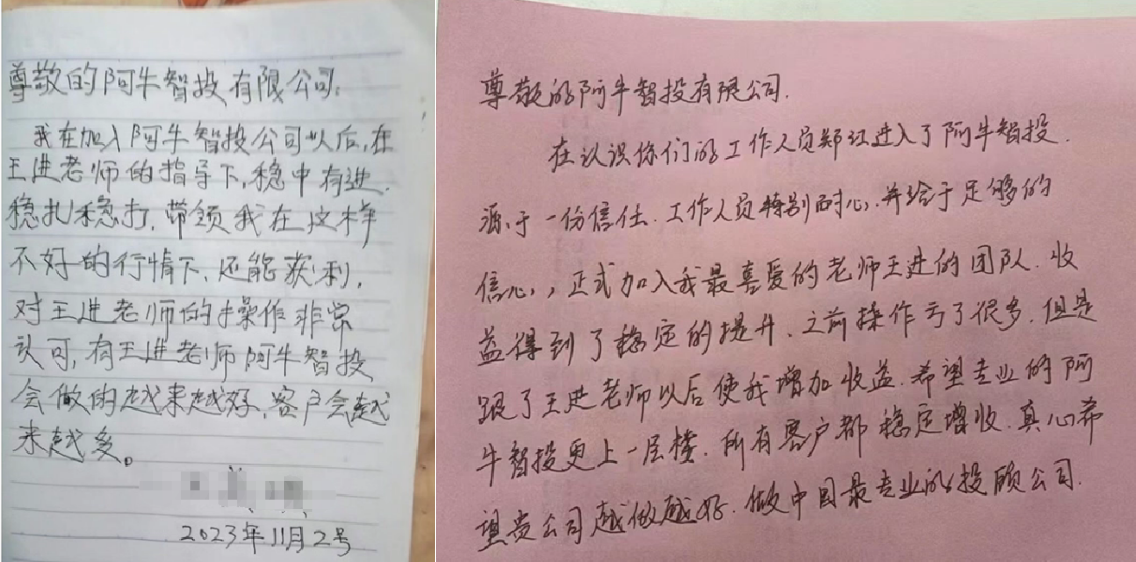 尊敬的阿牛智投有限公司：
我在加入阿牛智投公司以后，在
王进老师的指导下，稳中有进．
稳扎稳打，带领我在这样
不好的行情下，还能获利，
对王进老师的操作非常
认可，有王进老师阿牛智投
会做的越来越好，客户会越
来越多。
2023年11月2号
尊敬的阿牛智投有限公司．
在认识你们的工作人员郑红进入了阿牛智投．
源于一份信任．工作人员特别耐心，并给于足够的
信心，，正式加入我最喜爱的老师王进的团队．收
益得到了稳定的提升、之前操作亏了很多．但是
跟了王进老师以后使我增加收益．希望专业的阿
牛智投更上一层楼．所有客户都稳定增收．真心希
望贵公司越做越好．做中国最专业的投顾公司．